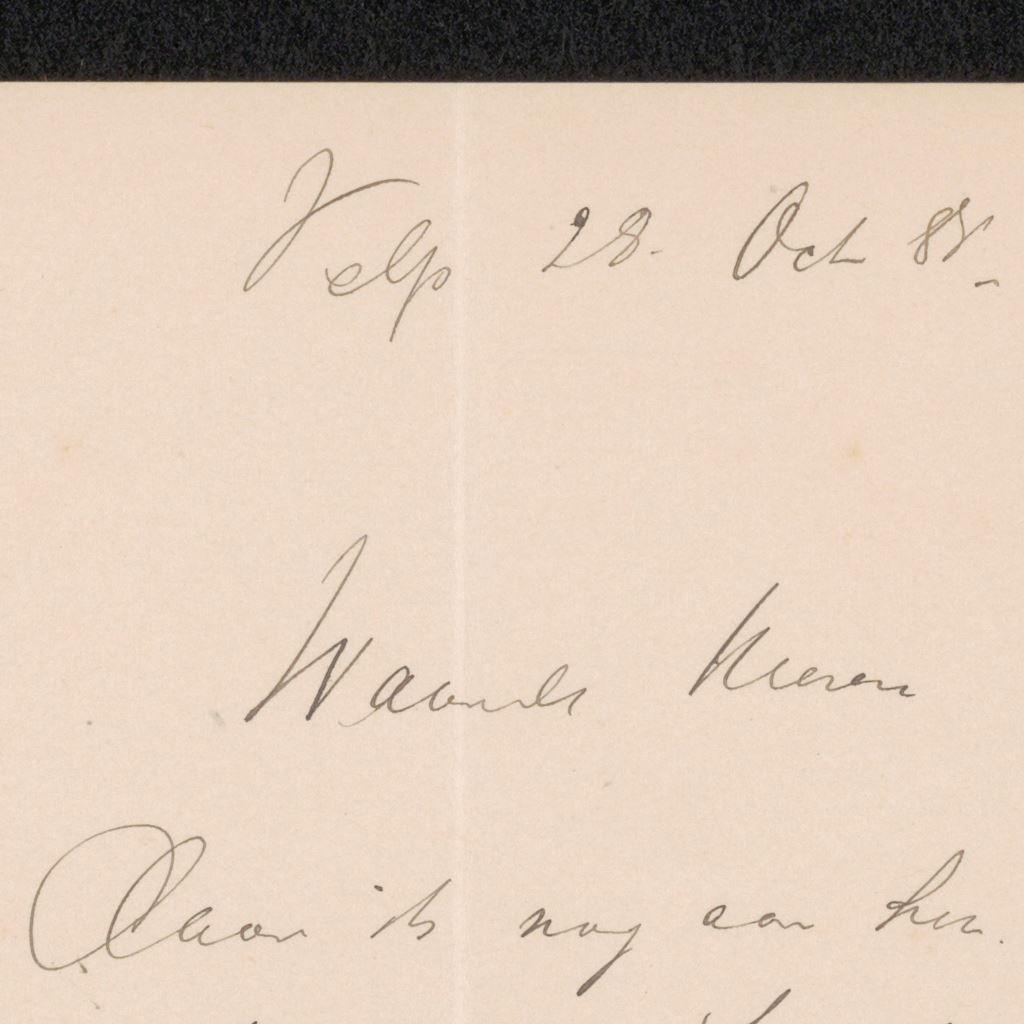 Velp 28. Oct 88.
Waarde Heeren
Daar ik nog aan het